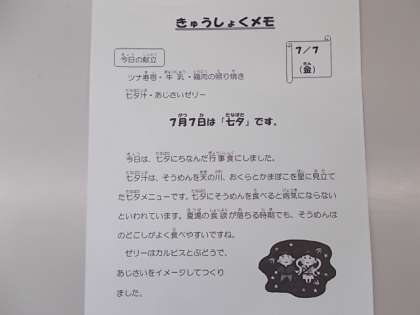 きゅうしょくメモ
7/7
(金)
今日の献立
ツナ寿司・牛乳・鶏肉の照り焼き
七夕汁・あじさいゼリー
7月7日は「七夕」です。
今日は、七夕にちなんだ行事食にしました。
七夕汁は、そうめんを天の川、おくらとかまぼこを星に見立て
た七夕メニューです。七夕にそうめんを食べると病気にならない
といわれています。夏場の食欲が落ちる時期でも、そうめんは
のどごしがよく食べやすいですね。
ゼリーはカルピスとぶどうで、
あじさいをイメージしてつくり
ました。